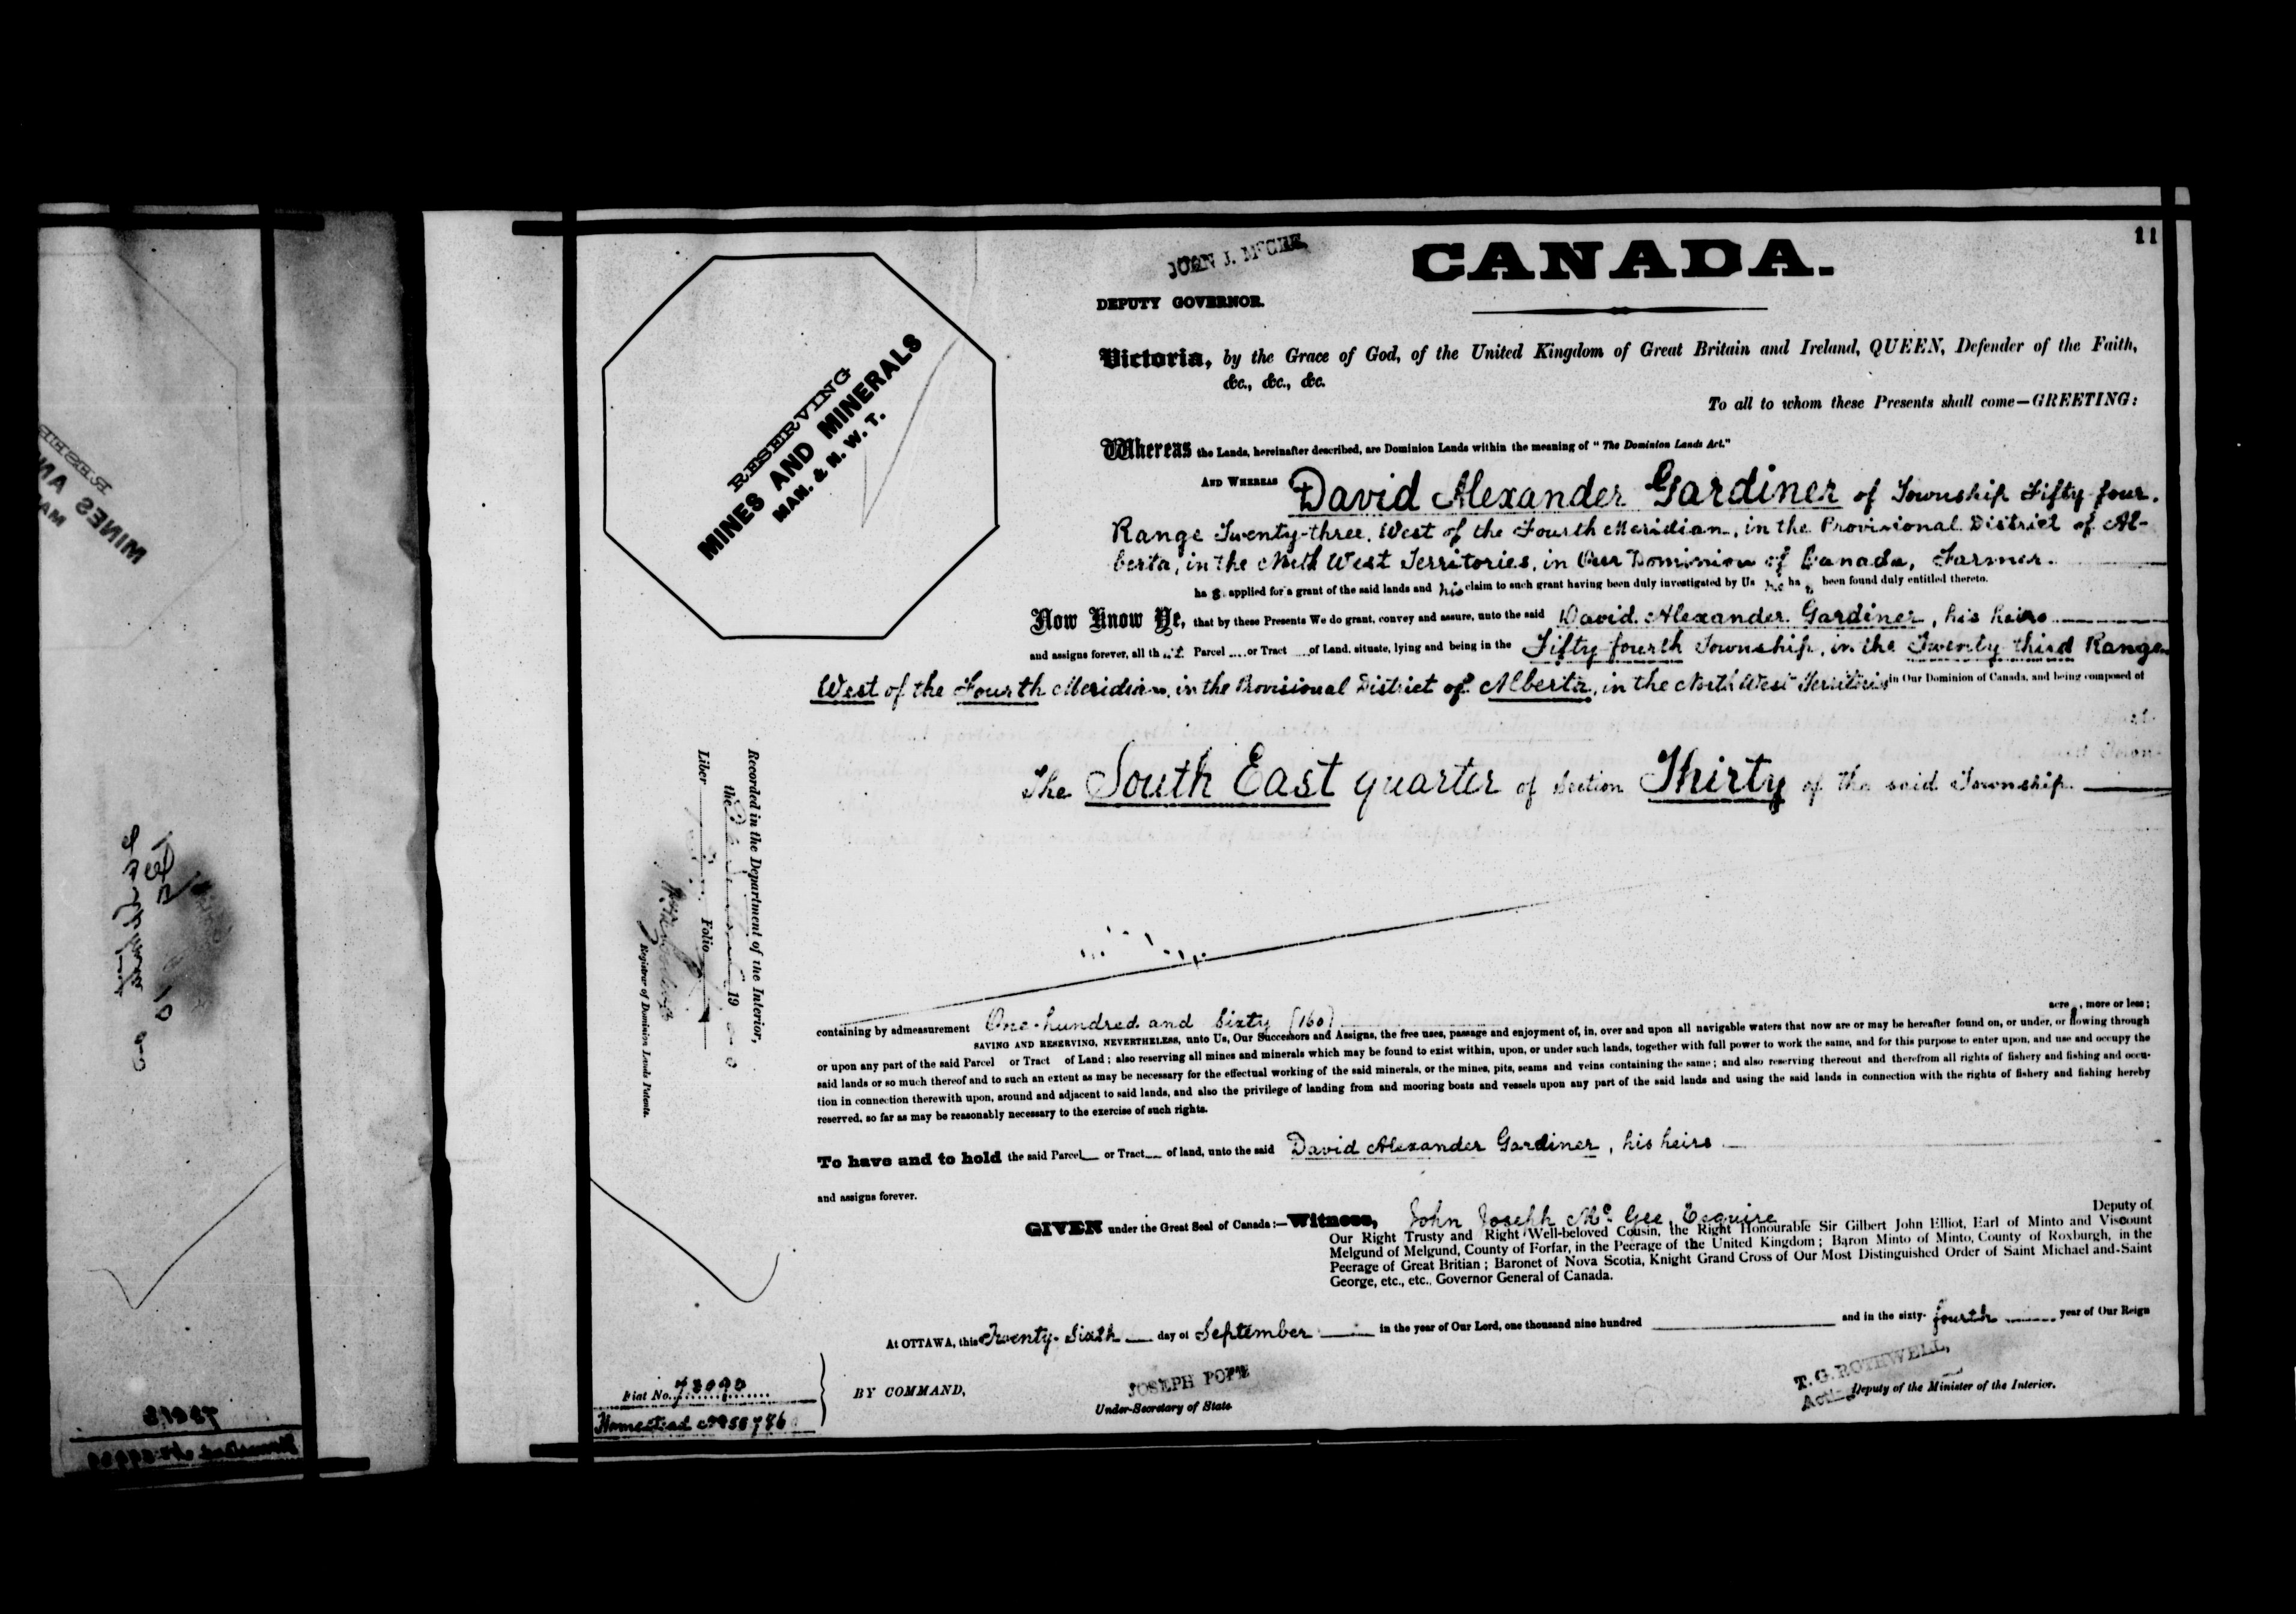 11
JOHN J. McGEE,
CANADA.
DEPUTY GOVERNOR.
RESERVING
MINES AND MINERALS
MAN. & N. W. T.
Victoria, by the Grace of God, of the United Kingdom of Great Britain and Ireland, QUEEN, Defender of the Faith,
&c., &c., &c.
To all to whom these Presents shall come—GREETING:
Whereas the Lands, hereinafter described, are Dominion Lands within the meaning of "The Dominion Lands Act."
AND WHEREAS David Alexander Gardiner of Township Fifty-four,
Range Twenty-three, West of the Fourth Meridian, in the Provisional District of Al-
berta, in the North West Territories, in Our Dominion of Canada, Farmer.
ha s applied for a grant of the said lands and his claim to such grant having been duly investigated by Us he ha s been found duly entitled thereto.
Now Know Ye, that by these Presents We do grant, convey and assure, unto the said David Alexander Gardiner, his heirs
and assigns forever, all th at Parcel or Tract of Land, situate, lying and being in the Fifty-fourth Township, in the Twenty-third Range
West of the Fourth Meridian, in the Provisional District of Alberta, in the North West Territories in Our Dominion of Canada, and being composed of
The South East quarter of Section Thirty of the said Township.
Recorded in the Department of the Interior,
the 19
Liber Folio
Registrar of Dominion Lands Patents.
acre s, more or less;
containing by admeasurement One hundred and Sixty (160)
SAVING AND RESERVING, NEVERTHELESS, unto Us, Our Successors and Assigns, the free uses, passage and enjoyment of, in, over and upon all navigable waters that now are or may be hereafter found on, or under, or flowing through
or upon any part of the said Parcel or Tract of Land; also reserving all mines and minerals which may be found to exist within, upon, or under such lands, together with full power to work the same, and for this purpose to enter upon, and use and occupy the
said lands or so much thereof and to such an extent as may be necessary for the effectual working of the said minerals, or the mines, pits, seams and veins containing the same; and also reserving thereout and therefrom all rights of fishery and fishing and occu-
tion in connection therewith upon, around and adjacent to said lands, and also the privilege of landing from and mooring boats and vessels upon any part of the said lands and using the said lands in connection with the rights of fishery and fishing hereby
reserved, so far as may be reasonably necessary to the exercise of such rights.
To have and to hold the said Parcel or Tract of land, unto the said David Alexander Gardiner, his heirs
and assigns forever.
GIVEN under the Great Seal of Canada:—Witness, John Joseph McGee, Esquire Deputy of
Our Right Trusty and Right Well-beloved Cousin, the Right Honourable Sir Gilbert John Elliot, Earl of Minto and Viscount
Melgund of Melgund, County of Forfar, in the Peerage of the United Kingdom; Baron Minto of Minto, County of Roxburgh, in the
Peerage of Great Britian; Baronet of Nova Scotia, Knight Grand Cross of Our Most Distinguished Order of Saint Michael and Saint
George, etc., etc., Governor General of Canada.
At OTTAWA, this Twenty-Sixth day of September in the year of Our Lord, one thousand nine hundred and in the sixty-fourth year of Our Reign
BY COMMAND,
JOSEPH POPE
Under-Secretary of State.
T. G. ROTHWELL,
Acting Deputy of the Minister of the Interior.
Fiat No. 73090
Homestead